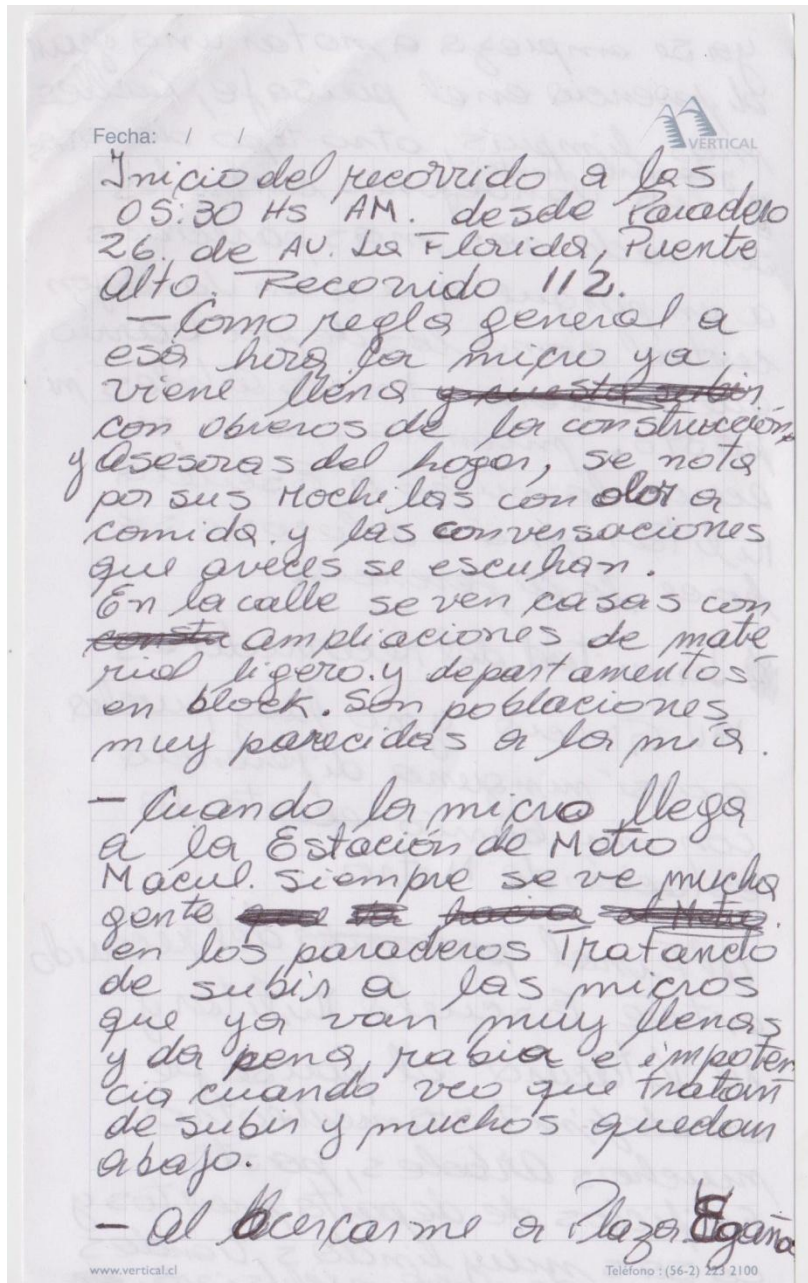 Fecha: / /
VERTICAL
Inicio del recorrido a las
05:30 Hs AM. desde Paradero
26. de AV. La Florida, Puente
Alto Recorrido 112.
— Como regla general a
esa hora la micro ya
viene llena y cuesta subir
con obreros de la construcción
y Asesoras del hogar, se nota
por sus mochilas con olor a
comida y las conversaciones
que aveces se escuhan.
En la calle se ven casas con
consta ampliaciones de mate
rial ligero. y departamentos
en block. Son poblaciones
muy parecidas a la mía.
— Cuando la micro llega
a la Estación de Metro
Macul. siempre se ve mucha
gente hacia el Metro.
en los paraderos Tratando
de subir a las micros
que ya van muy llenas
y da pena, rabia e impoten
cia cuando veo que tratan
de subir y muchos quedan
abajo.
— Al Acercarme a Plaza Egaña
www.vertical.cl
Teléfono : (56-2) 223 2100